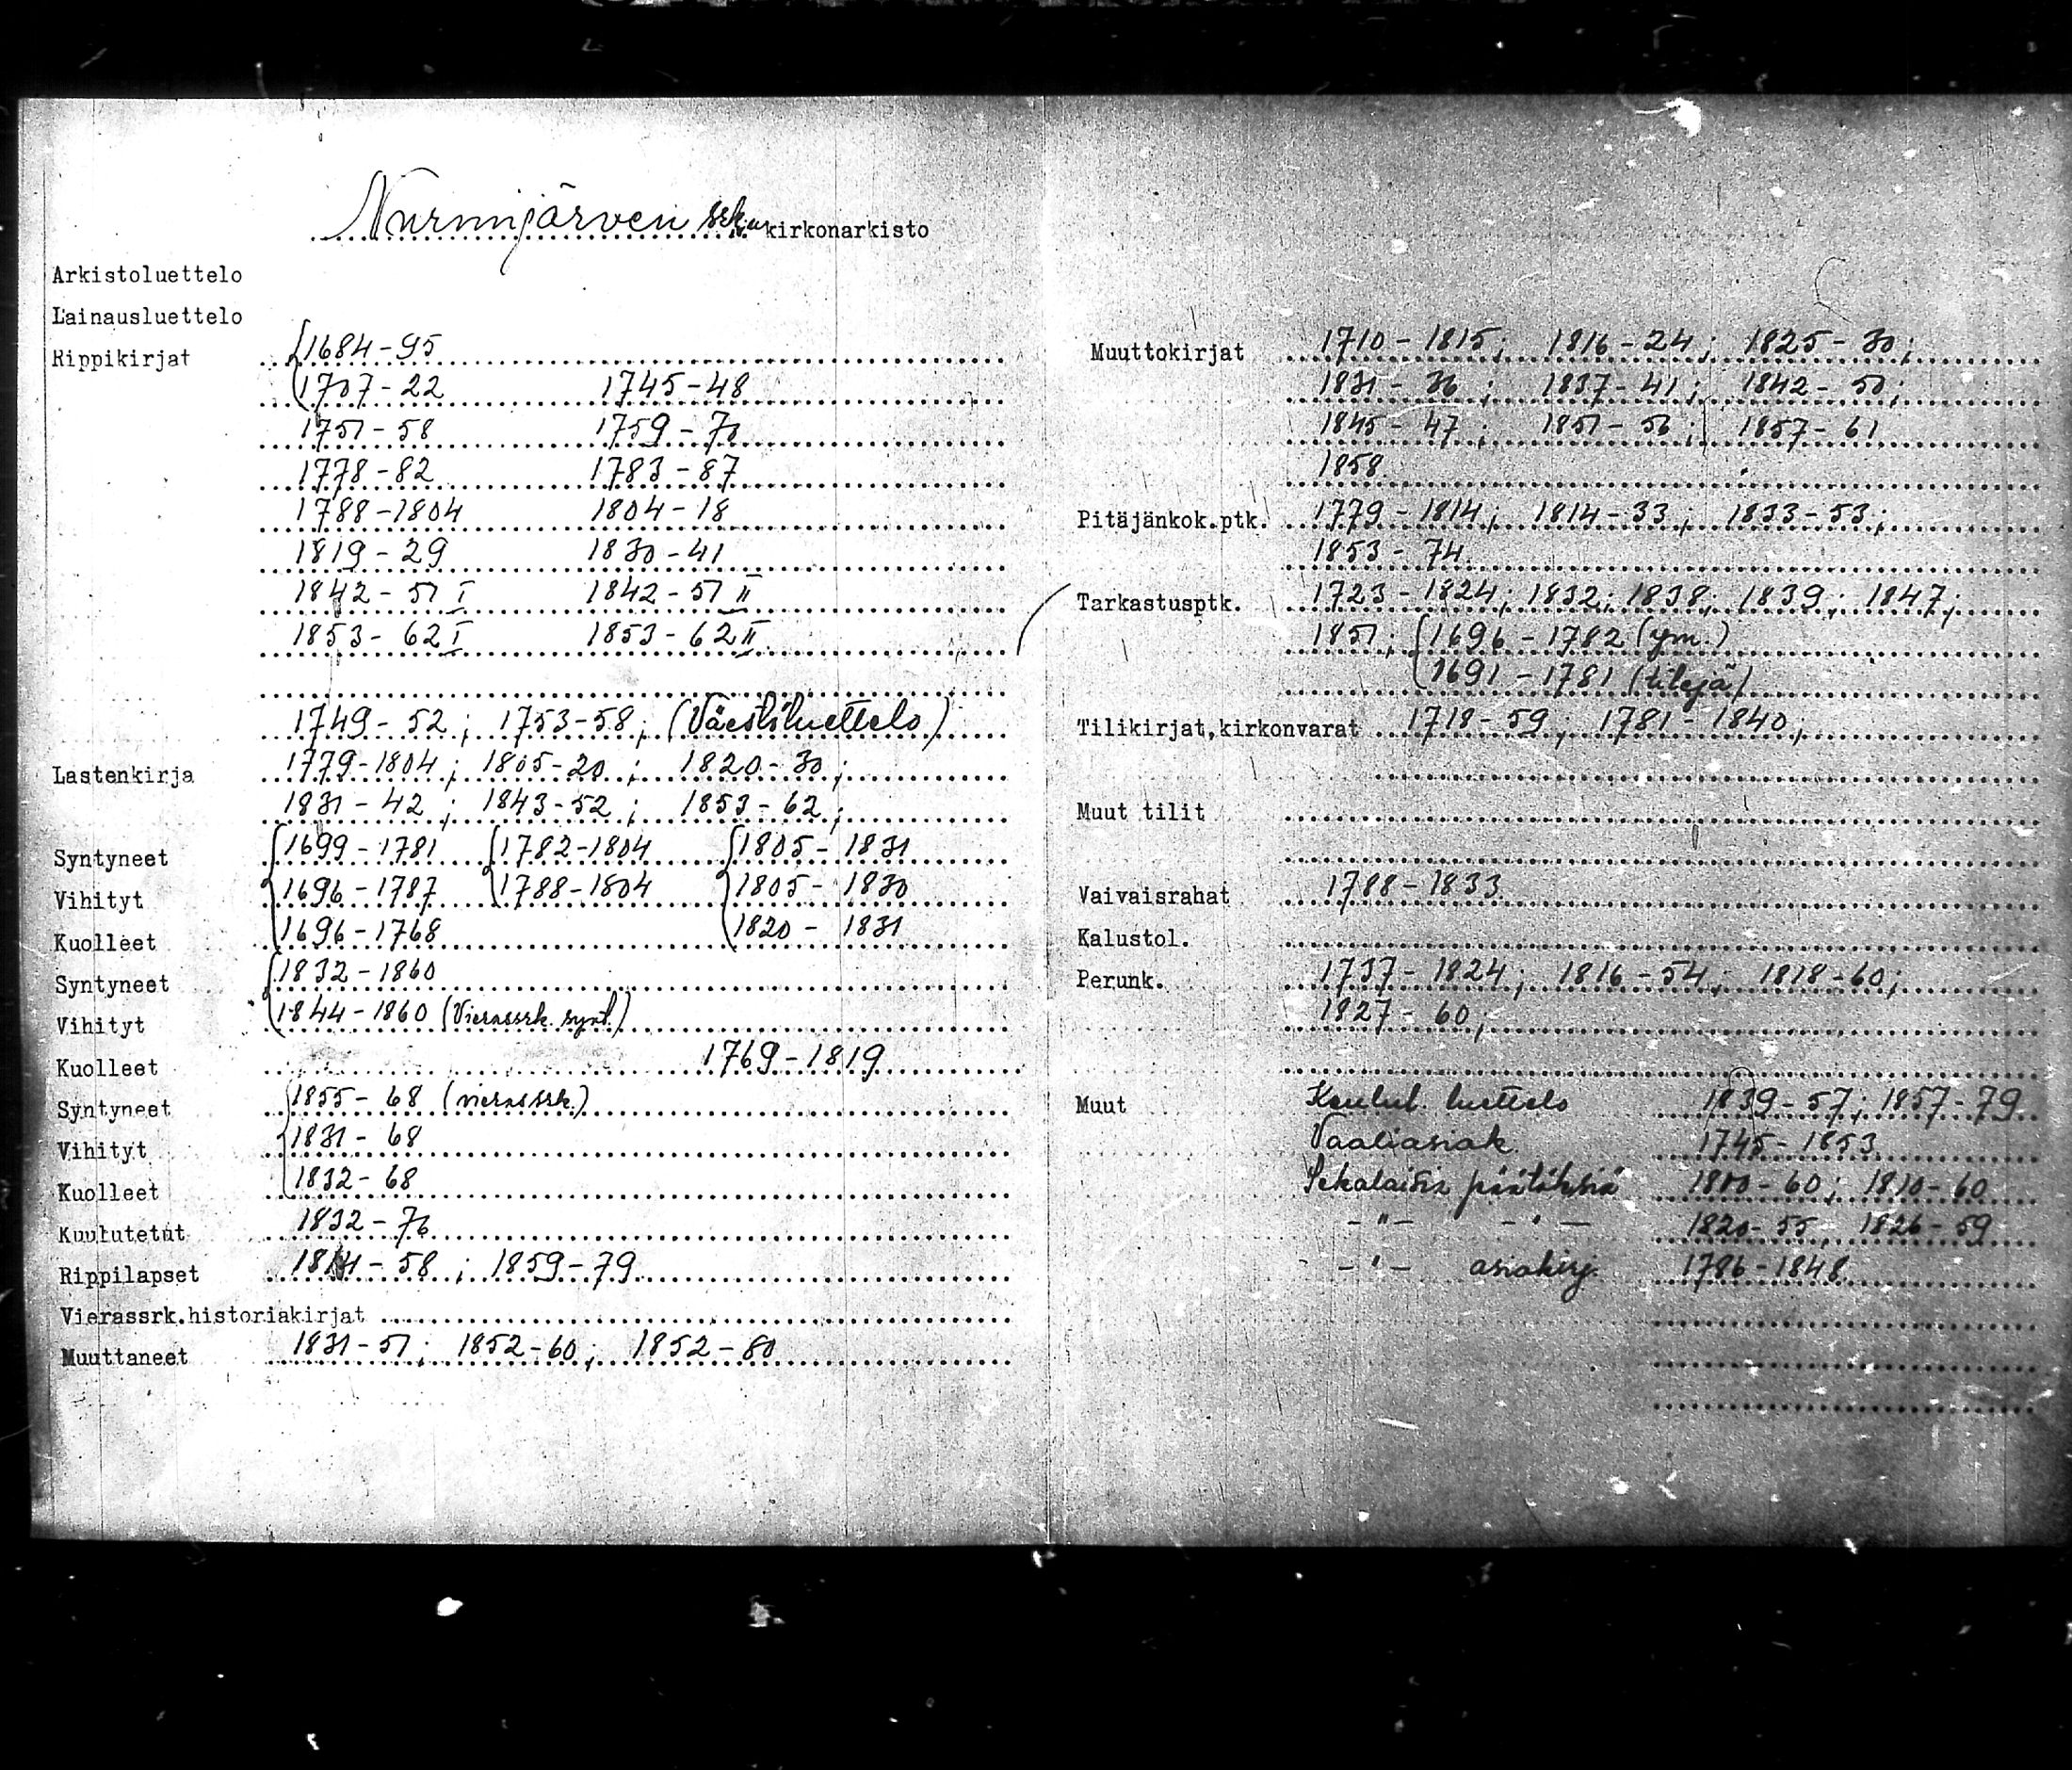 Nurmijärven srk:n kirkonarkisto
Arkistoluettelo
Lainausluettelo
Rippikirjat 1684-95
1707-22 1745-48
1751-58 1759-70
1778-82 1783-87
1788-1804 1804-18
1819-29 1830-41
1842-51 I 1842-51 II
1853-62 I 1853-62 II
1749-52; 1753-58; (Väestöluettelo)
Lastenkirja 1779-1804; 1805-20; 1820-30;
1831-42; 1843-52; 1853-62;
Syntyneet 1699-1781 1782-1804 1805-1831
Vihityt 1696-1787 1788-1804 1805-1830
Kuolleet 1696-1768 1820-1831
Syntyneet 1832-1860
Vihityt 1844-1860 (Vierassrk. synt.)
Kuolleet 1769-1819
Syntyneet 1855-68 (vierassrk.)
Vihityt 1831-68
Kuolleet 1832-68
Kuulutetut 1832-76
Rippilapset 1814-58; 1859-79
Vierassrk.historiakirjat
Muuttaneet 1831-51; 1852-60; 1852-80
Muuttokirjat 1710-1815; 1816-24; 1825-30;
1831-36; 1837-41; 1842-50;
1845-47; 1851-56; 1857-61
1858
Pitäjänkok.ptk. 1779-1814; 1814-33; 1833-53;
1853-74
Tarkastusptk. 1723-1824; 1832; 1838; 1839; 1847;
1851; 1696-1782 (ym.)
1691-1781 (tilejä)
Tilikirjat,kirkonvarat 1718-59; 1781-1840;
Muut tilit
Vaivaisrahat 1788-1833
Kalustol.
Perunk. 1737-1824; 1816-54; 1818-60;
1827-60;
Muut Kuulut. luettelo 1839-57; 1857-79
Vaaliasiak. 1745-1853
Sekalaisia päätöksiä 1800-60; 1810-60
-"- -"- 1820-55; 1826-59
-"- asiakirj. 1786-1848